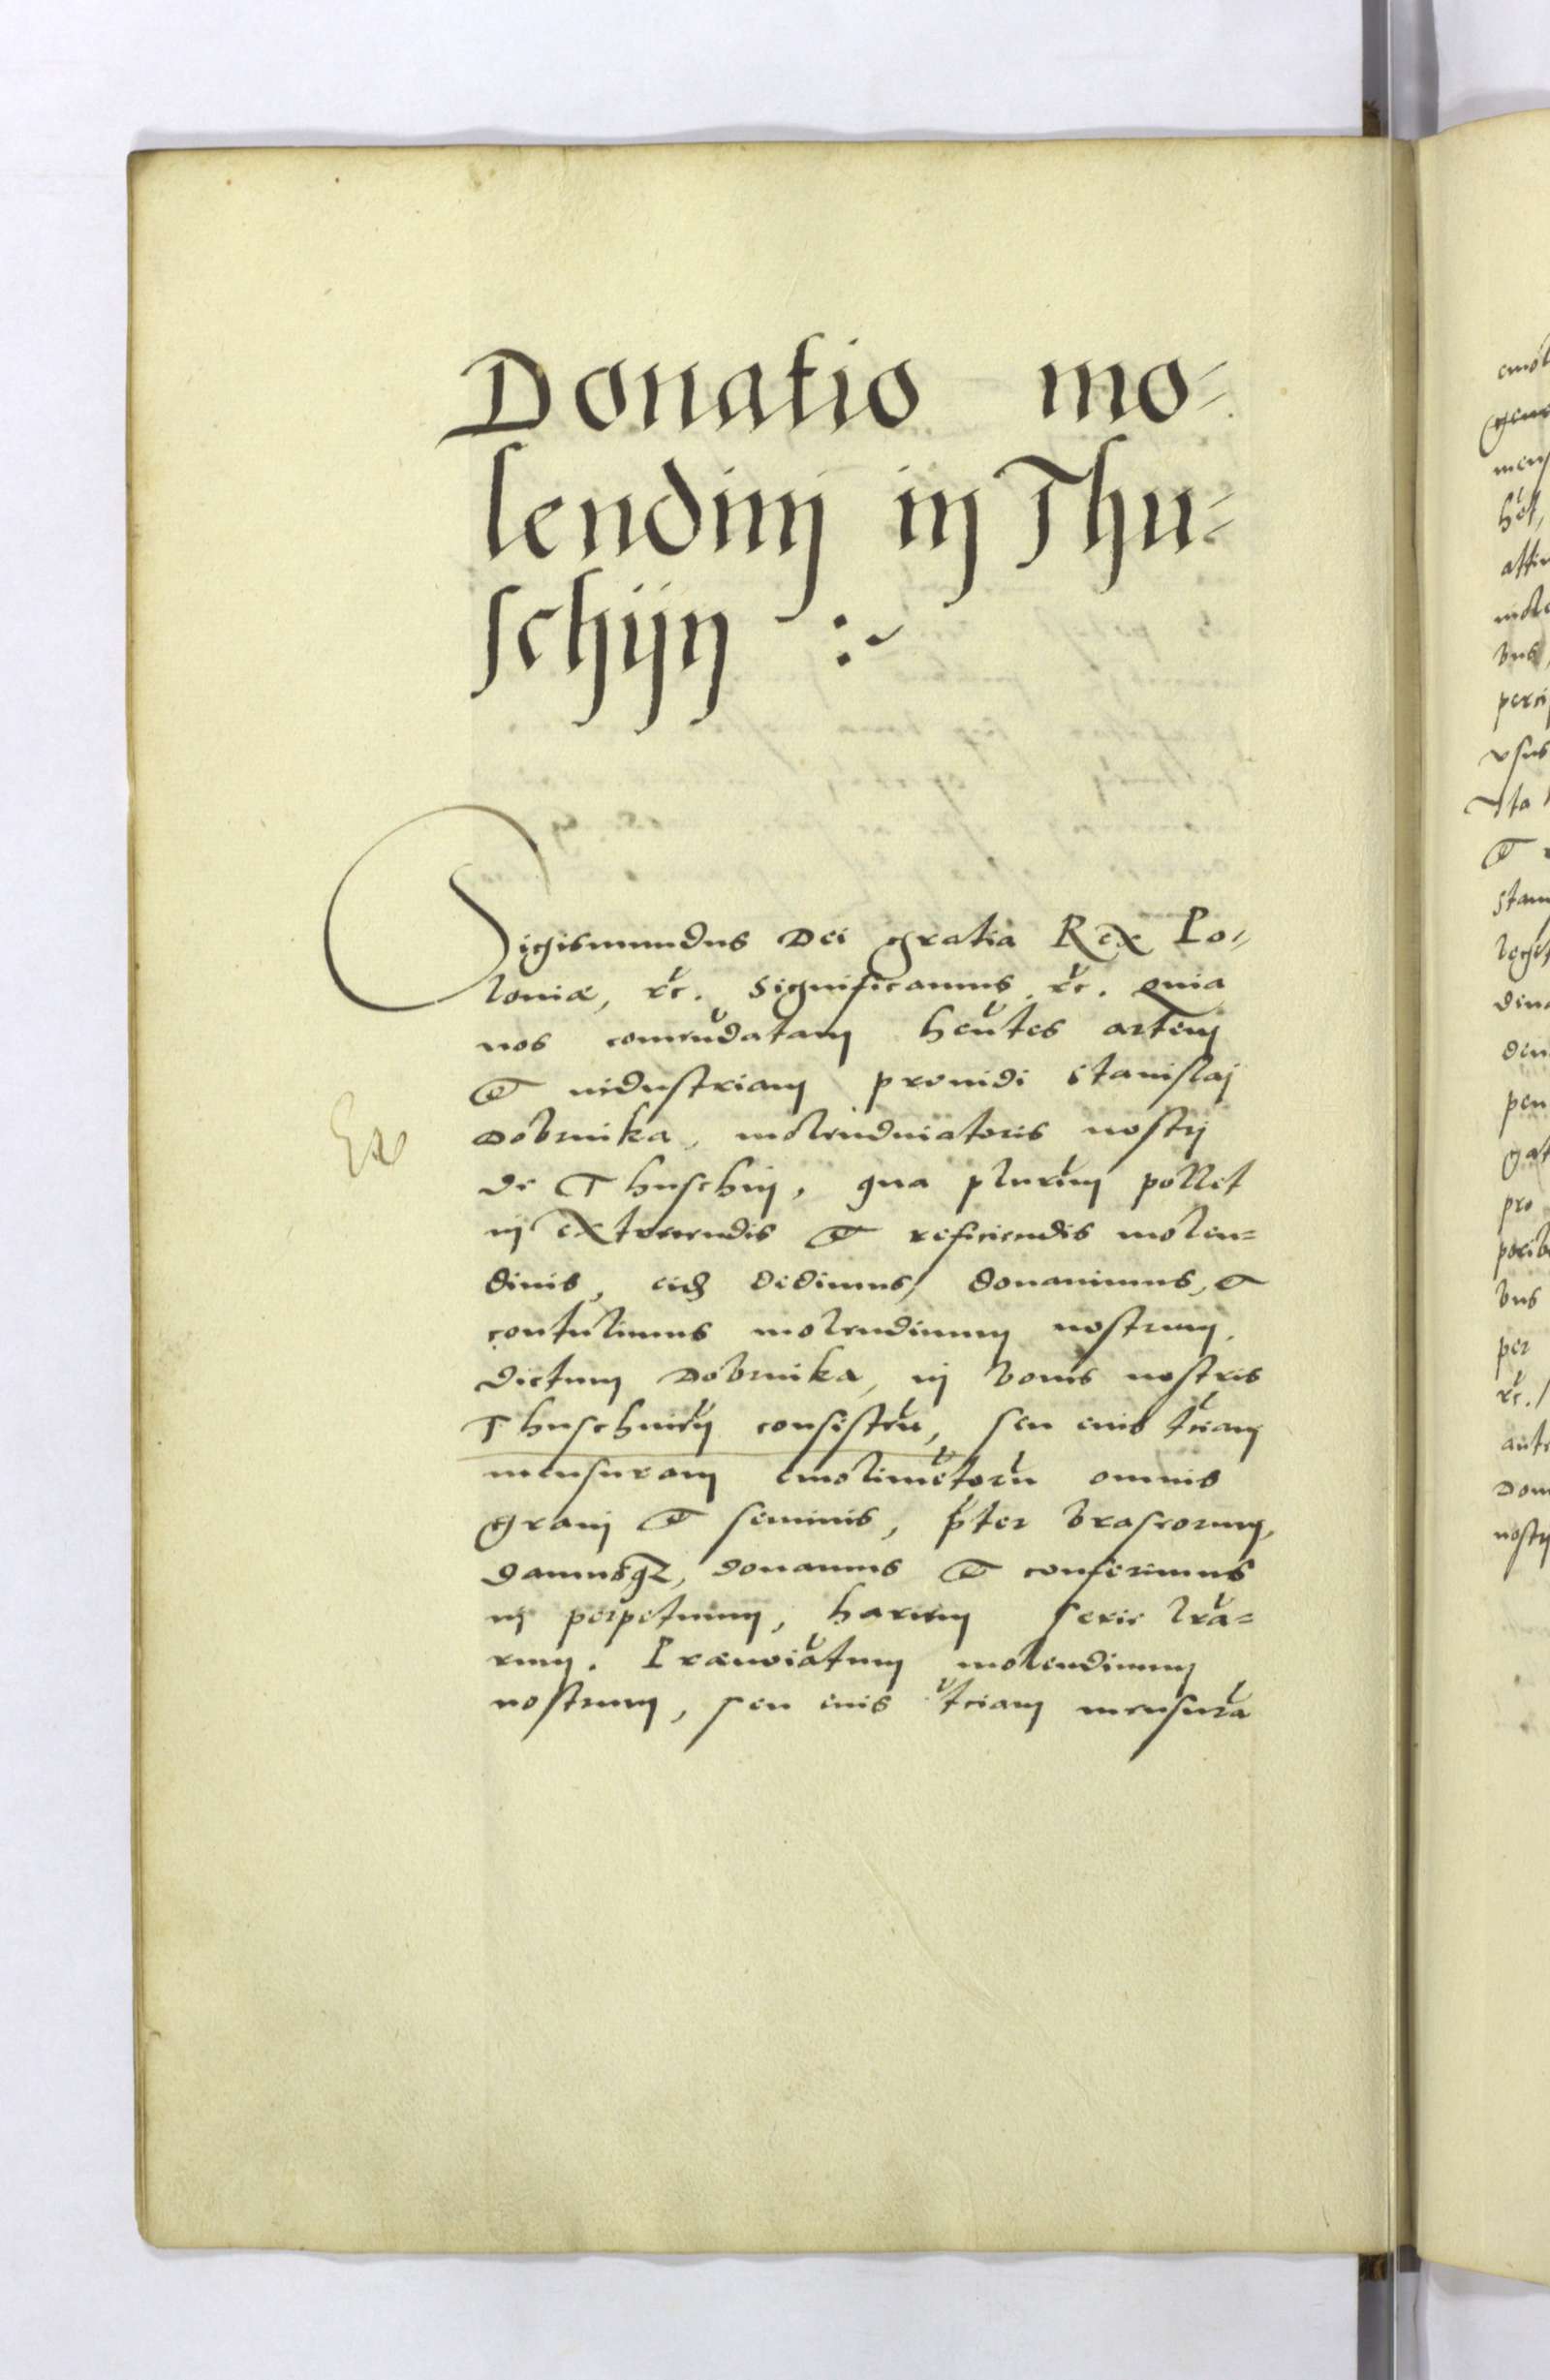 Donatio mo-
lendinj in Thu-
schijn :~
Sigismundus Dei gratia Rex Po-
loniæ, etc. Significamus etc. quia
nos comendatam hentes artem
et industriam prouidi Stanislaj
Dobrnika, molendinatoris nostrj
de Thuschin, qua plurim pollet
in extruendis et reficiendis molen=
dinis, eidem dedimus, donauimus, et
contulimus molendinum nostrum,
dictum Dobrnika, in bonis nostris
consisten, seu eius tciam
mensuram emolimetoru omnis
granj et seminis, pter braseorum,
damusq3, donamus et conferimus
in perpetuum, harum serie lra=
rum. molendinum
nostrum, seu eius tciam mensura
Ex